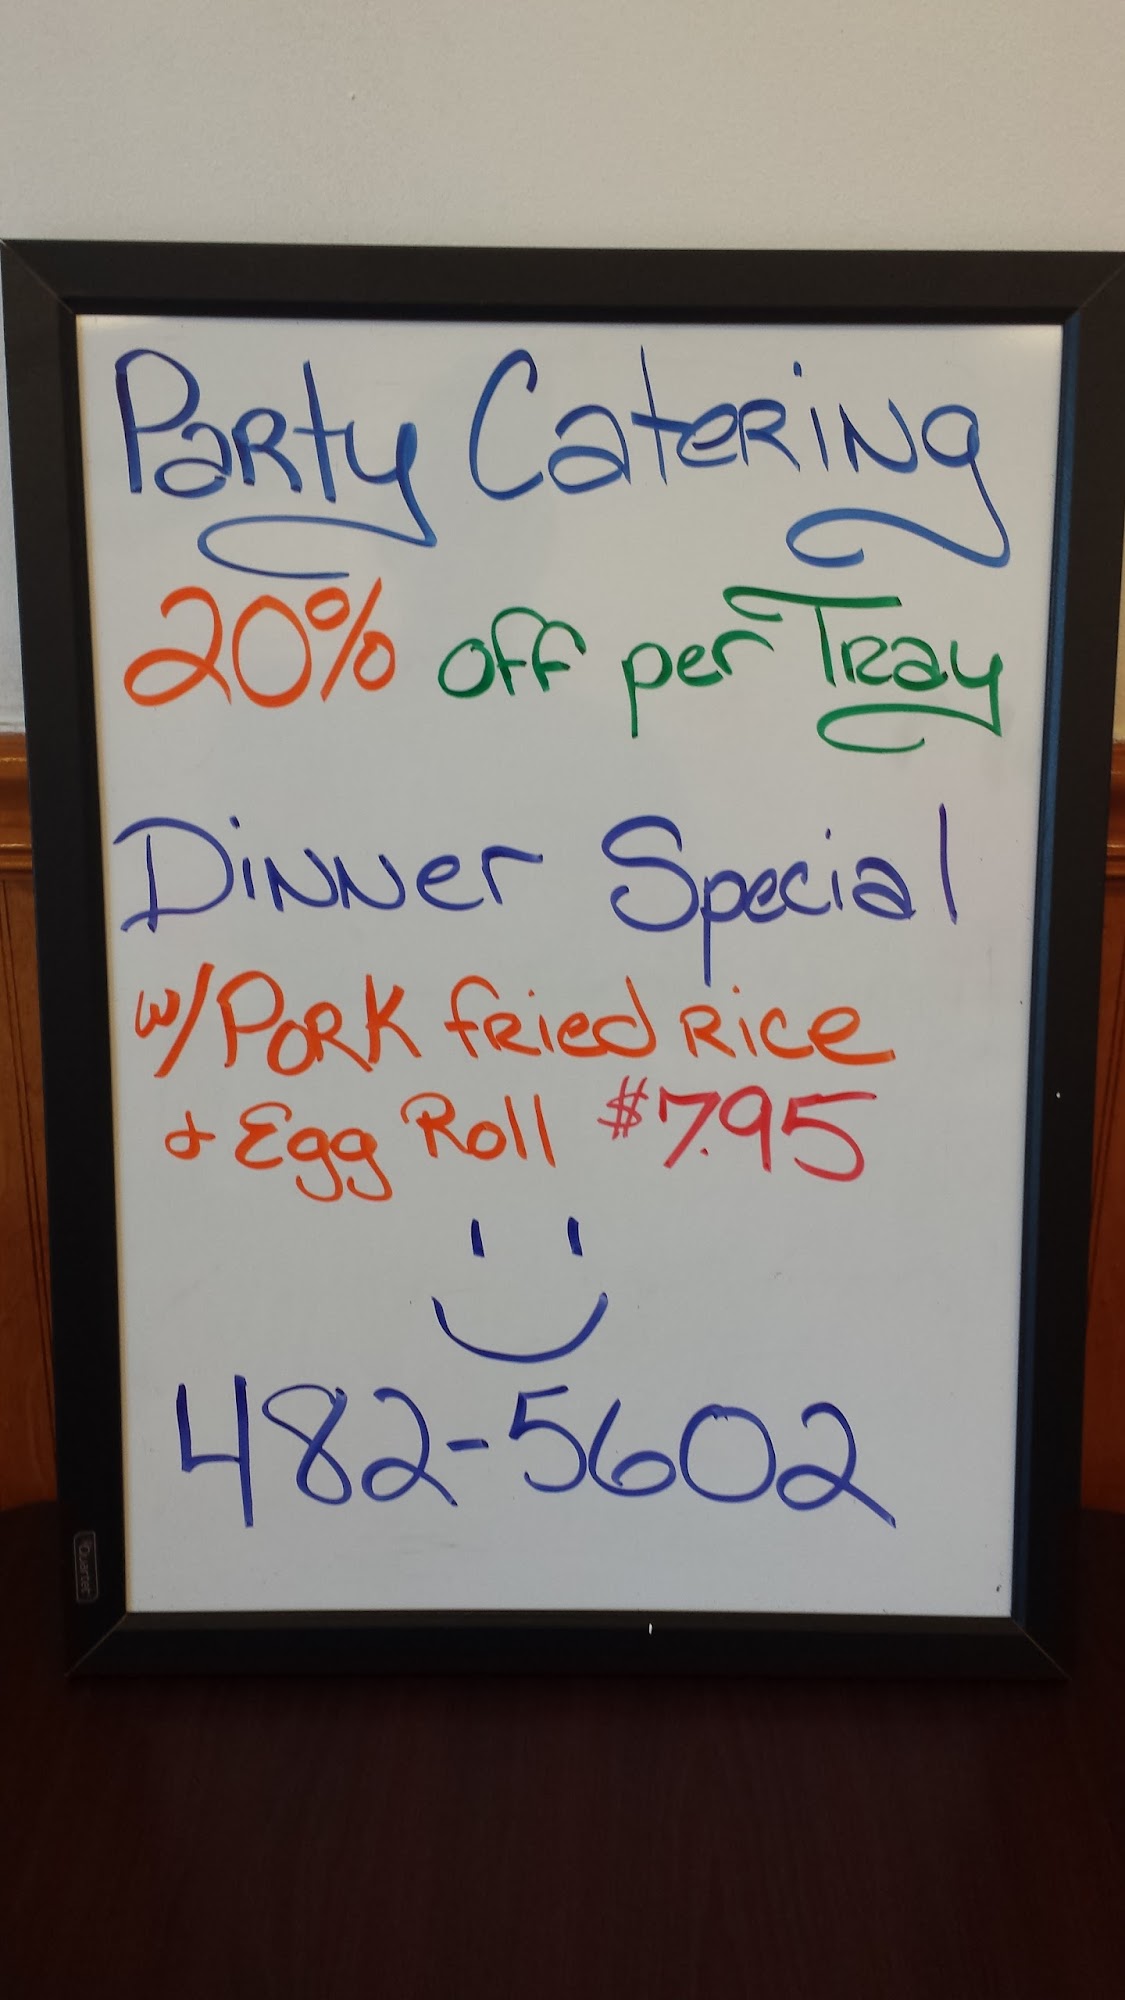 Party Catering
20% off per Tray
Dinner Special
w/ Pork fried rice
& Egg Roll $7.95
482-5602
Quartet